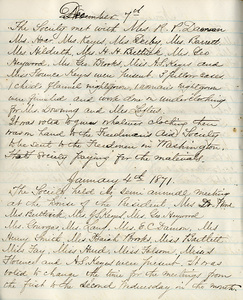 December 7th
The Society met with Mrs. R. P. Damon
Mrs Hoar Mrs Keyes, Mrs Reeby, Mrs Barrett
Mrs Hildreth, Mrs N. H. Bartlett, Mrs Geo
Heywood, Mrs Geo Brooks, Miss A. L. Keyes and
Miss Florence Keyes were present. 3 pillow cases
1 child's flannel nightgown, 1 woman's nightgown
were finished and work done on underclothing
for Mrs Downing and Mrs
It was voted to give whatever clothing there
was on hand to the Freedman's Aid Society
to be sent to the Freedmen in Washington,
that Society paying for the materials.
January 4th 1871.
The Society held its semi annual meeting
at the house of the President, Mrs Dr
Mrs Bartlett, Mrs J. S. Keyes, Mrs Geo Heywood
Mrs Mrs Mrs E. C. Damon, Mrs
Henry Smith, Mrs Isaiah Hoopes, Miss Bartlett
Mrs Miss Hurd Miss Folsom, Misses
Florence and A. S. Keyes were present. It was
voted to change the time for the meetings from
the first to the second Wednesday in the month.